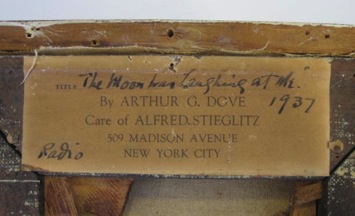 TITLE "The Moon Was Laughing at Me."
By ARTHUR G. DOVE 1937
Care of ALFRED STIEGLITZ
509 MADISON AVENUE
Radio NEW YORK CITY